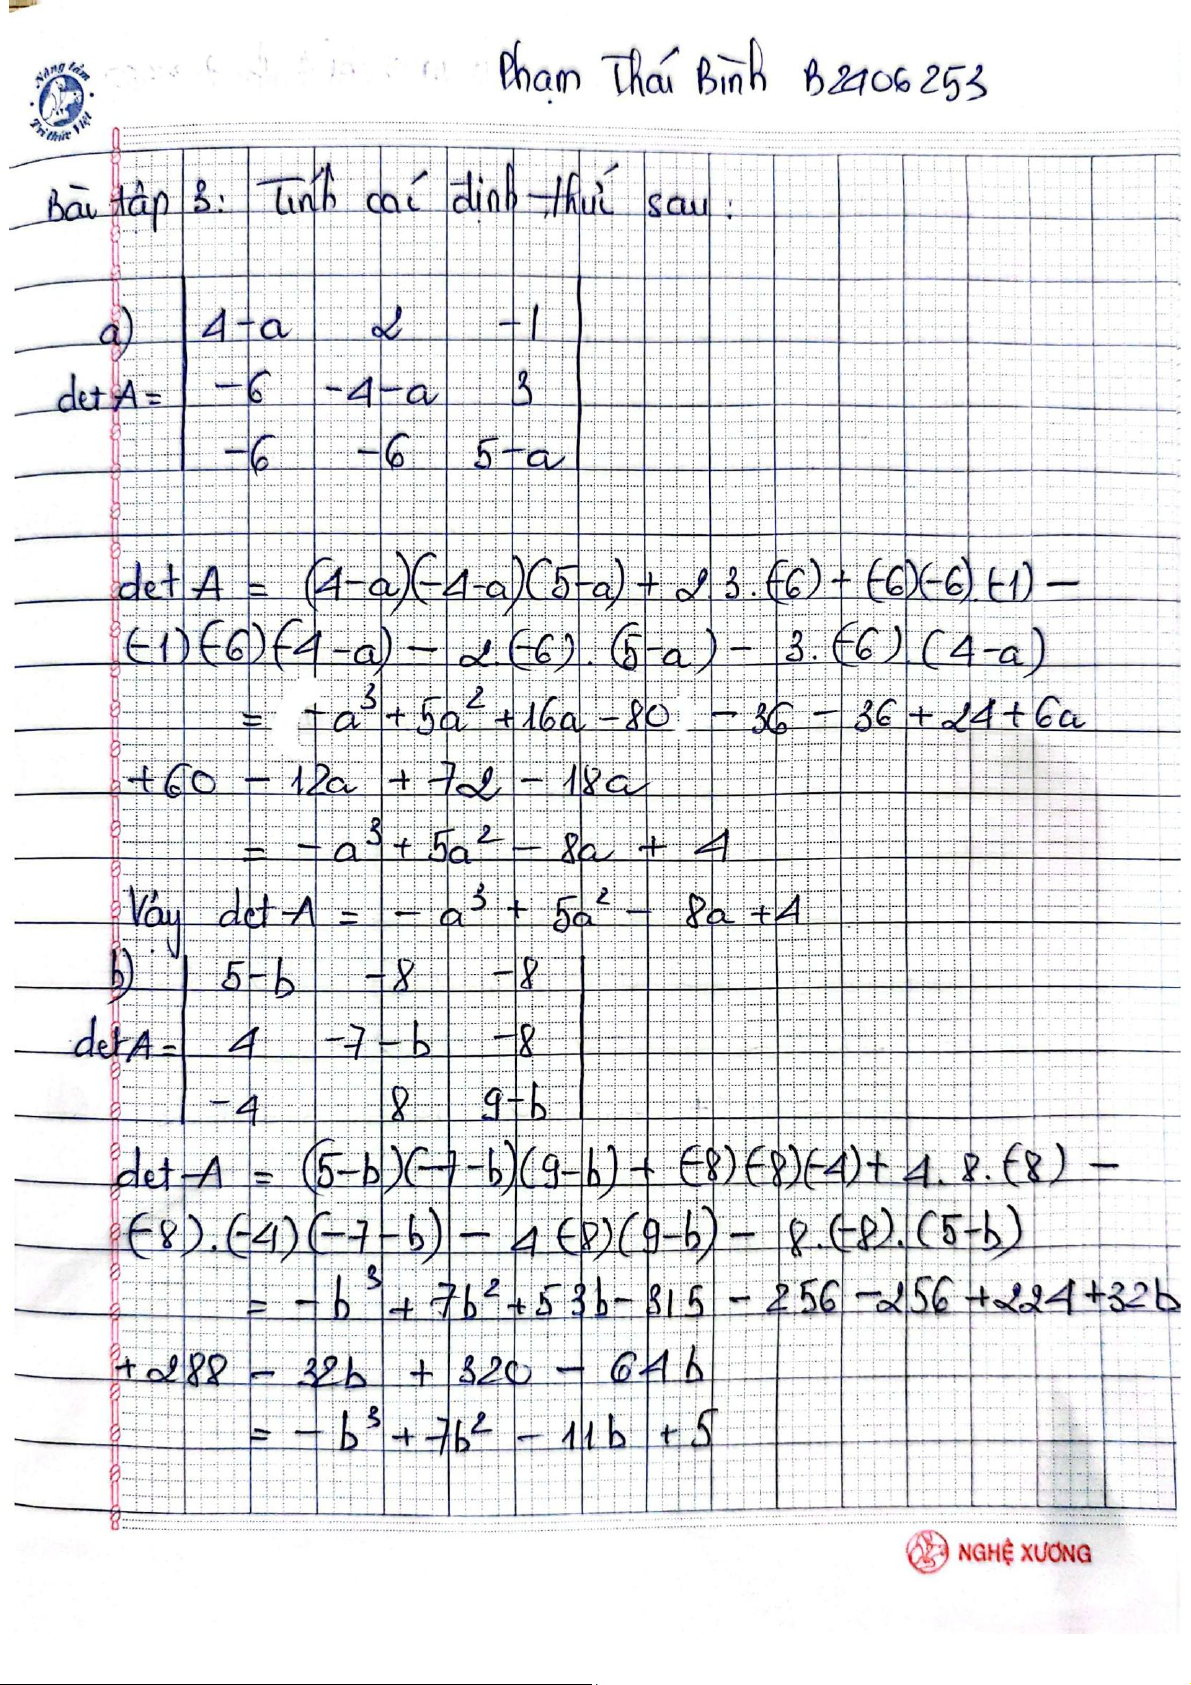 Nâng tầm
Tri thức Việt
Phạm Thái Bình B2106253
Bài tập 3: Tính các định thức sau:
a) | 4-a 2 -1 |
det A = | -6 -4-a 3 |
| -6 -6 5-a |
det A = (4-a)(-4-a)(5-a) + 2.3.(-6) + (-6)(-6).(-1) -
(-1)(-6)(-4-a) - 2.(-6).(5-a) - 3.(-6).(4-a)
= -a³ + 5a² + 16a - 80 - 36 - 36 + 24 + 6a
+60 - 12a + 72 - 18a
= -a³ + 5a² - 8a + 4
Vậy det A = -a³ + 5a² - 8a + 4
b) | 5-b -8 -8 |
det A = | 4 -7-b -8 |
| -4 8 9-b |
det A = (5-b)(-7-b)(9-b) + (-8)(-8)(-4) + 4.8.(-8) -
(-8).(-4)(-7-b) - 4(-8)(9-b) - 8.(-8).(5-b)
= -b³ + 7b² + 53b - 315 - 256 - 256 + 224 + 32b
+288 - 32b + 320 - 64b
= -b³ + 7b² - 11b + 5
NGHỆ XƯƠNG